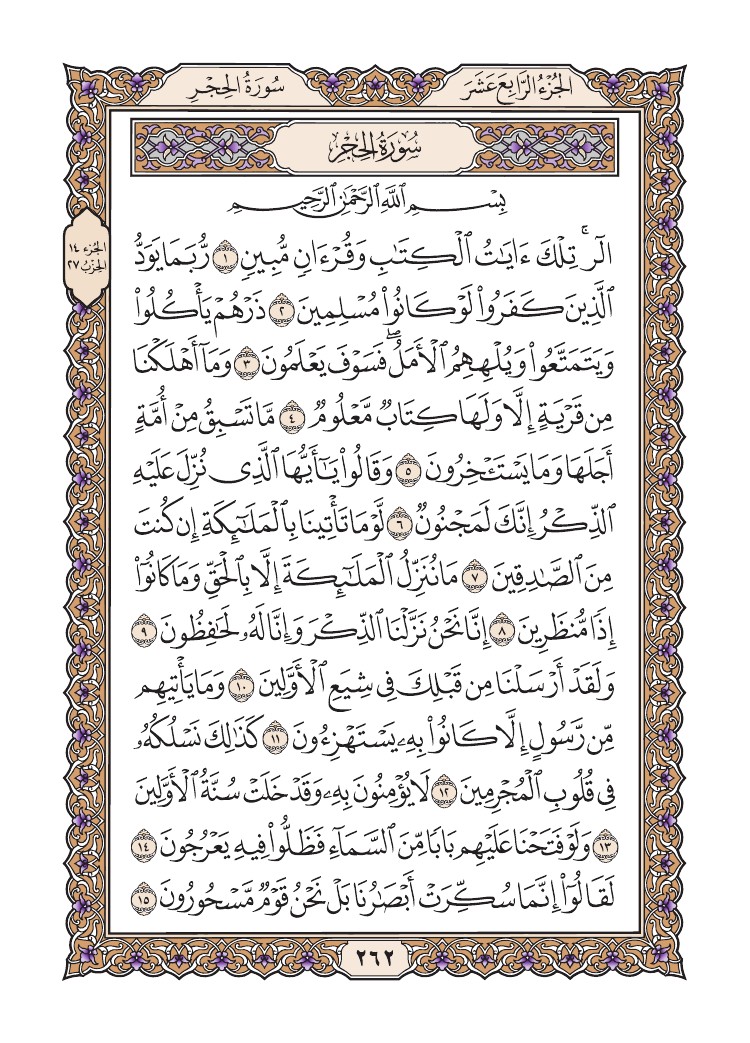 الجُزْءُ الرَّابِعَ عَشَرَ
سُورَةُ الحِجْرِ
سُورَةُ الحِجْرِ
بِسْمِ ٱللَّهِ ٱلرَّحْمَٰنِ ٱلرَّحِيمِ
الجُزء ١٤
الحِزْبُ ٢٧
الٓرۚ تِلْكَ ءَايَٰتُ ٱلْكِتَٰبِ وَقُرْءَانٖ مُّبِينٖ ١ رُّبَمَا يَوَدُّ
ٱلَّذِينَ كَفَرُواْ لَوْ كَانُواْ مُسْلِمِينَ ٢ ذَرْهُمْ يَأْكُلُواْ
وَيَتَمَتَّعُواْ وَيُلْهِهِمُ ٱلْأَمَلُۖ فَسَوْفَ يَعْلَمُونَ ٣ وَمَآ أَهْلَكْنَا
مِن قَرْيَةٍ إِلَّا وَلَهَا كِتَابٞ مَّعْلُومٞ ٤ مَّا تَسْبِقُ مِنْ أُمَّةٍ
أَجَلَهَا وَمَا يَسْتَـْٔخِرُونَ ٥ وَقَالُواْ يَٰٓأَيُّهَا ٱلَّذِي نُزِّلَ عَلَيْهِ
ٱلذِّكْرُ إِنَّكَ لَمَجْنُونٞ ٦ لَّوْمَا تَأْتِينَا بِٱلْمَلَٰٓئِكَةِ إِن كُنتَ
مِنَ ٱلصَّٰدِقِينَ ٧ مَا نُنَزِّلُ ٱلْمَلَٰٓئِكَةَ إِلَّا بِٱلْحَقِّ وَمَا كَانُوٓاْ
إِذٗا مُّنظَرِينَ ٨ إِنَّا نَحْنُ نَزَّلْنَا ٱلذِّكْرَ وَإِنَّا لَهُۥ لَحَٰفِظُونَ ٩
وَلَقَدْ أَرْسَلْنَا مِن قَبْلِكَ فِي شِيَعِ ٱلْأَوَّلِينَ ١٠ وَمَا يَأْتِيهِم
مِّن رَّسُولٍ إِلَّا كَانُواْ بِهِۦ يَسْتَهْزِءُونَ ١١ كَذَٰلِكَ نَسْلُكُهُۥ
فِي قُلُوبِ ٱلْمُجْرِمِينَ ١٢ لَا يُؤْمِنُونَ بِهِۦ وَقَدْ خَلَتْ سُنَّةُ ٱلْأَوَّلِينَ
١٣ وَلَوْ فَتَحْنَا عَلَيْهِم بَابٗا مِّنَ ٱلسَّمَآءِ فَظَلُّواْ فِيهِ يَعْرُجُونَ ١٤
لَقَالُوٓاْ إِنَّمَا سُكِّرَتْ أَبْصَٰرُنَا بَلْ نَحْنُ قَوْمٞ مَّسْحُورُونَ ١٥
٢٦٢